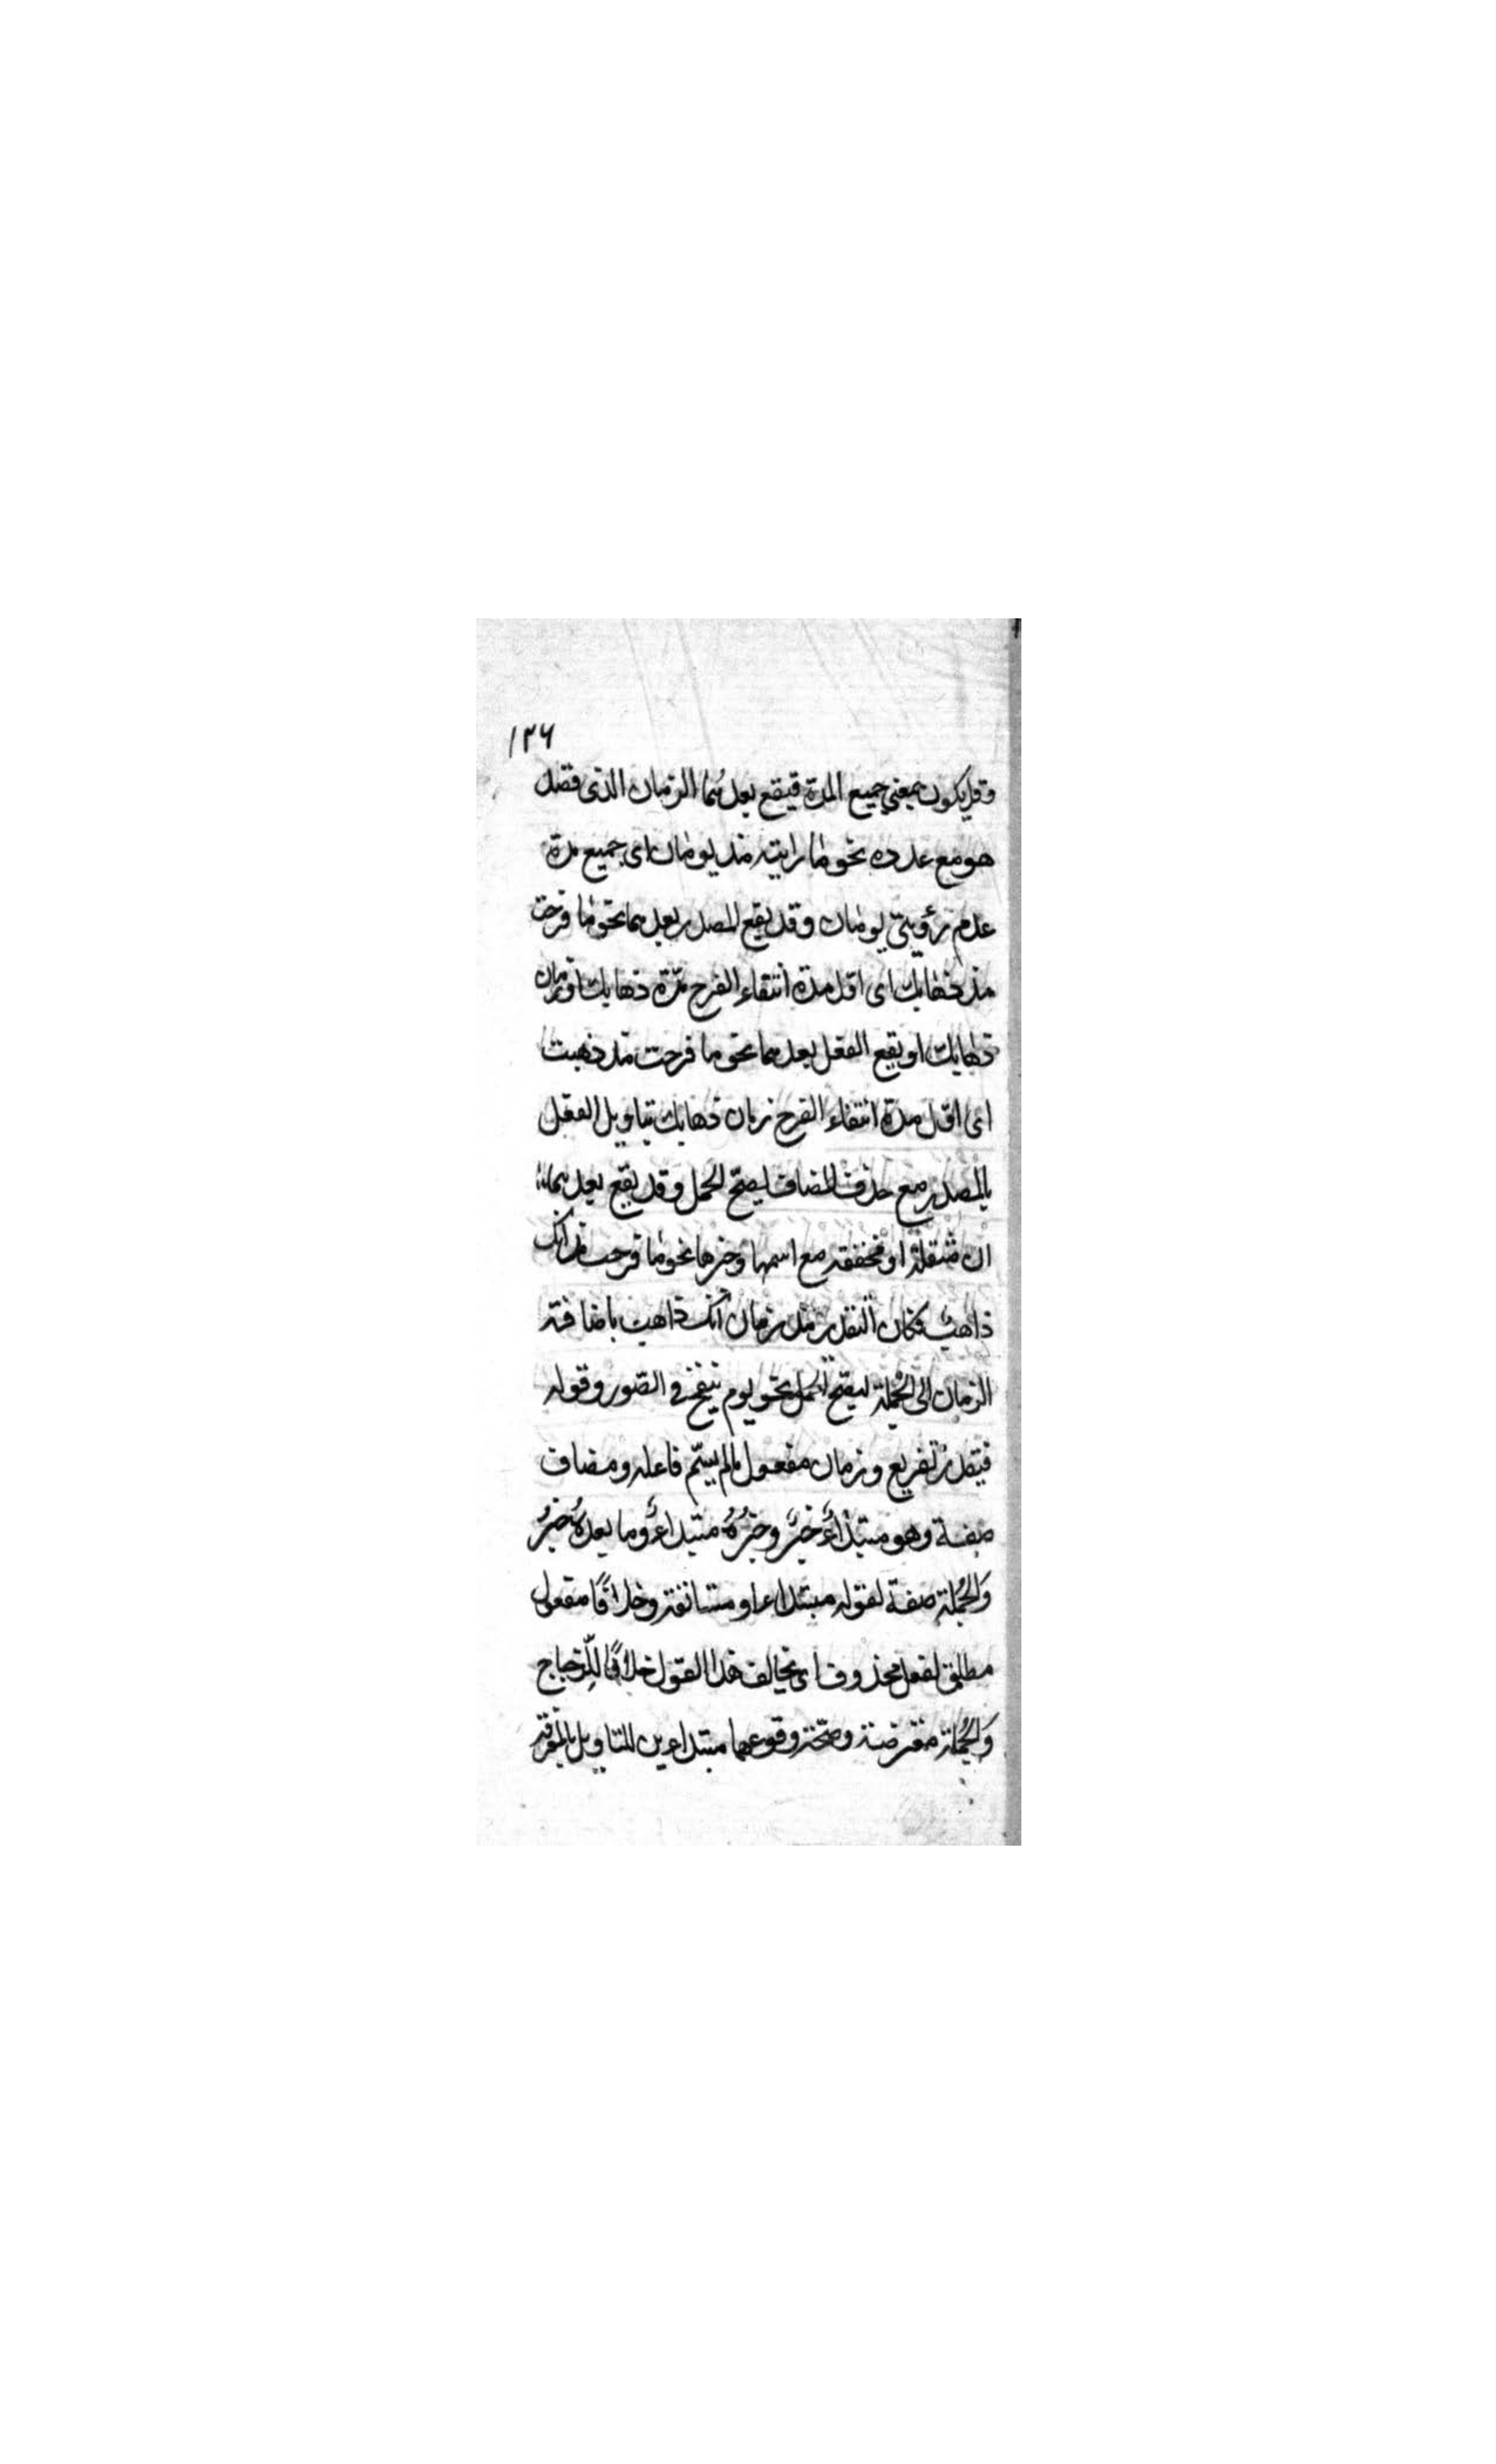 ١٣٦
وقد يكون بمعنى جميع المدة فيقع بعدهما الزمان الذى قصد
هو مع عدده نحو ما رايته مذ يومان اى جميع مدة
عدم رؤيتى يومان وقد يقع المصدر بعدهما نحو ما فرحت
مذ ذهابك اى اول مدة انتفاء الفرح مدة ذهابك او زمان
ذهابك او يقع الفعل بعدهما نحو ما فرحت مذ ذهبت
اى اول مدة انتفاء الفرح زمان ذهابك بتاويل الفعل
بالمصدر مع حذف المضاف ليصح الحمل وقد يقع بعدهما
ان مثقلة او مخففة مع اسمها وخبرها نحو ما فرحت مذ انك
ذاهب فكان التقدير مذ زمان انك ذاهب باضافة
الزمان الى الجملة ليصح الحمل نحو يوم ينفخ فى الصور وقوله
فيقدر تفريع وزمان مفعول مالم يسم فاعله ومضاف
صفة وهو مبتداءٌ خبرٌ وخبرُهُ مبتداءٌ وما بعدهُ خبرُ
والجملة صفة لقوله مبتداء او مستانفة وخلافًا مفعول
مطلق لفعل محذوف اى يخالف هذا القول خلافًا للزجاج
والجملة معترضة وصحة وقوعهما مبتداءين للتاويل بالمعرفة